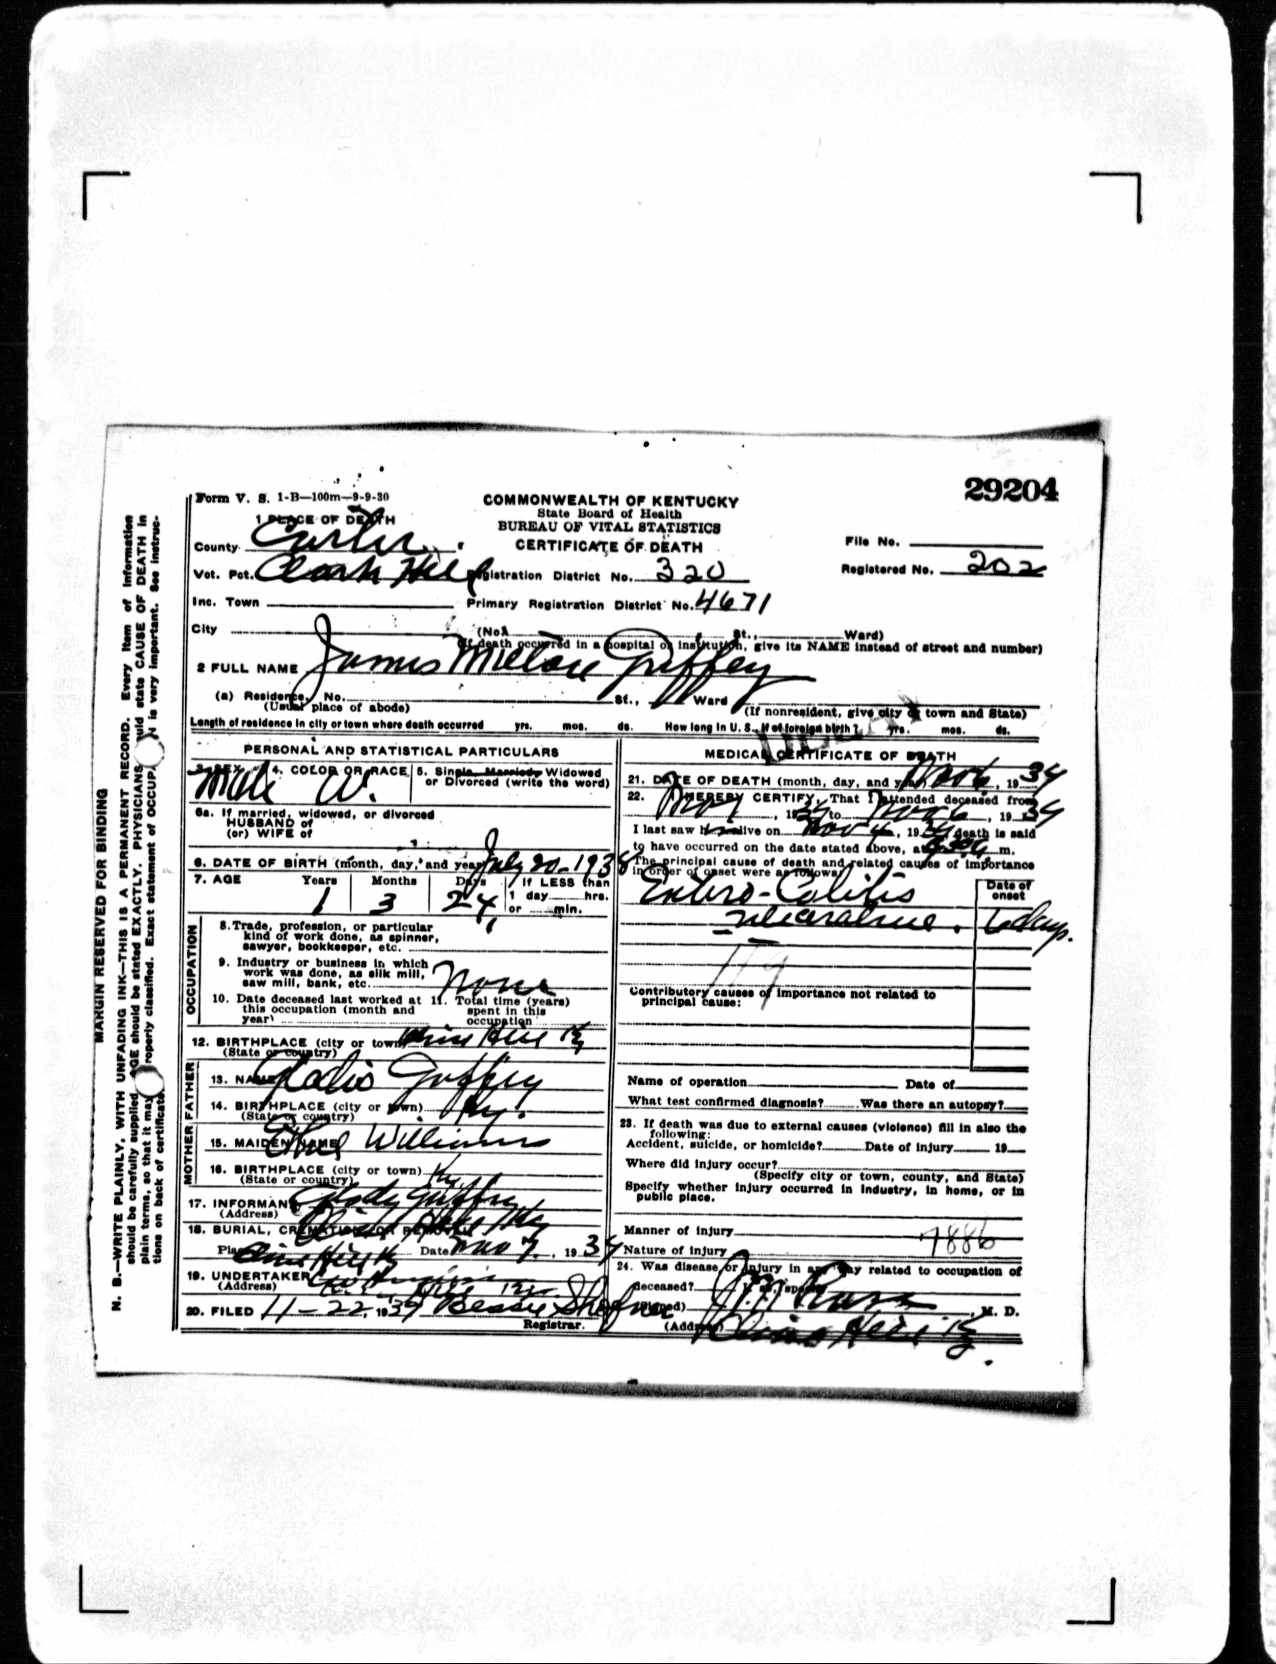 Form V. S. 1-B—100m—9-9-30
29204
COMMONWEALTH OF KENTUCKY
State Board of Health
BUREAU OF VITAL STATISTICS
CERTIFICATE OF DEATH
1 PLACE OF DEATH
County Carter
File No.
Registered No. 202
Vot. Pct. Registration District No. 320
Inc. Town Primary Registration District No. 4671
City (No. St., Ward)
(If death occurred in a hospital or institution, give its NAME instead of street and number)
2 FULL NAME James Milton Guffey
(a) Residence, No. St., Ward
(Usual place of abode) (If nonresident, give city or town and State)
Length of residence in city or town where death occurred yrs. mos. ds. How long in U. S., if of foreign birth? yrs. mos. ds.
PERSONAL AND STATISTICAL PARTICULARS
3. SEX Male 4. COLOR OR RACE W. 5. Single, Married, Widowed or Divorced (write the word)
6a. If married, widowed, or divorced
HUSBAND of
(or) WIFE of
6. DATE OF BIRTH (month, day, and year) July 20-193
7. AGE Years Months Days If LESS than
1 3 24 1 day hrs.
or min.
OCCUPATION
8. Trade, profession, or particular
kind of work done, as spinner,
sawyer, bookkeeper, etc.
9. Industry or business in which
work was done, as silk mill,
saw mill, bank, etc. None
10. Date deceased last worked at
this occupation (month and
year)
11. Total time (years)
spent in this
occupation
12. BIRTHPLACE (city or town) Hill Ky
(State or country)
FATHER
13. NAME Guffey
14. BIRTHPLACE (city or town) Ky.
(State or country)
MOTHER
15. MAIDEN NAME Ethel Williams
16. BIRTHPLACE (city or town) Ky
(State or country)
17. INFORMANT Guffey
(Address) Ky
18. BURIAL, CREMATION OR REMOVAL
Place Olive Hill K Date Nov 7, 1934
19. UNDERTAKER
(Address)
20. FILED 11-22, 1934 Bessie
Registrar.
MEDICAL CERTIFICATE OF DEATH
21. DATE OF DEATH (month, day, and year) Nov 6, 1934
22. I HEREBY CERTIFY, That I attended deceased from
Nov, 1934 to Nov 6, 1934
I last saw h alive on Nov, 1934 death is said
to have occurred on the date stated above, at m.
The principal cause of death and related causes of importance
in order of onset were as follows:
Date of
onset
Entero-Colitis
6 days.
119
Contributory causes of importance not related to
principal cause:
Name of operation Date of
What test confirmed diagnosis? Was there an autopsy?
23. If death was due to external causes (violence) fill in also the
following:
Accident, suicide, or homicide? Date of injury 19
Where did injury occur?
(Specify city or town, county, and State)
Specify whether injury occurred in industry, in home, or in
public place.
Manner of injury
7886
Nature of injury
24. Was disease or injury in any way related to occupation of
deceased? If so, specify
(Signed), M. D.
(Address) Olive Hill Ky
MARGIN RESERVED FOR BINDING
N. B.—WRITE PLAINLY, WITH UNFADING INK—THIS IS A PERMANENT RECORD. Every item of information
should be carefully supplied. AGE should be stated EXACTLY. PHYSICIANS should state CAUSE OF DEATH in
plain terms, so that it may properly classified. Exact statement of OCCUP N is very important. See instruc-
tions on back of certificate